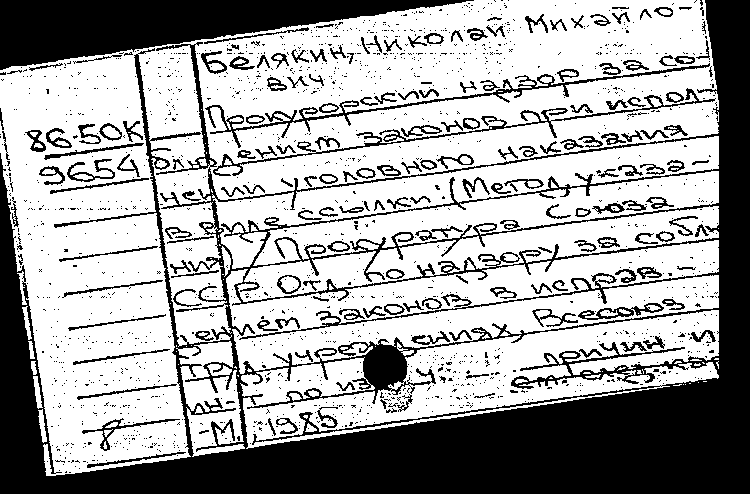 Белякин, Николай Михайло-
вич
86-50К
9654
Прокурорский надзор за со-
блюдением законов при испол-
нении уголовного наказания
в виде ссылки: (Метод, указа-
ния) / Прокуратура Союза
ССР. Отд. по надзору за соблю
дением законов в исправ.-
труд. учреждениях, Всесоюз.
ин-т по из причин и
-М., 1985
8